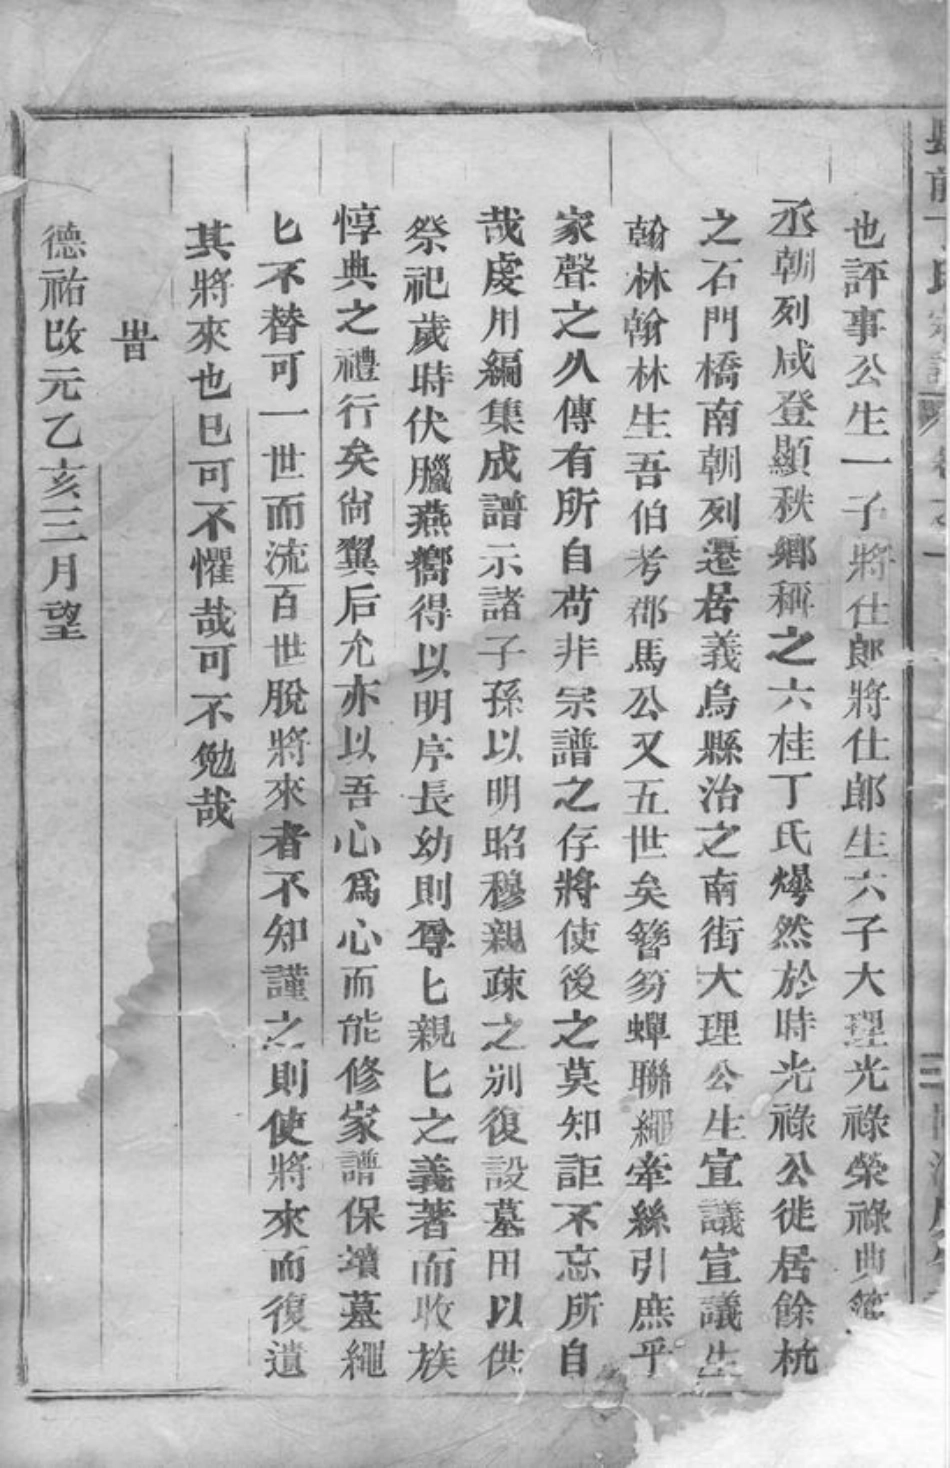 也評事公生一子將仕郎將仕郎生六子大理光祿榮祿典簿
丞朝列咸登顯秩鄉稱之六桂丁氏爗然於時光祿公徙居餘杭
之石門橋南朝列遷居義烏縣治之南街大理公生宣議宣議生
翰林翰林生吾伯考郡馬公又五世矣簪笏蟬聯繩牽絲引庶乎
家聲之久傳有所自苟非宗譜之存將使後之莫知詎不忘所自
哉虔用編集成譜示諸子孫以明昭穆親疎之別復設墓田以供
祭祀歲時伏臘燕嚮得以明序長幼則尊匕親匕之義著而收族
惇典之禮行矣尙翼后允亦以吾心爲心而能修家譜保墳墓繩
匕不替可一世而流百世脫將來者不知謹之則使將來而復遺
其將來也已可不懼哉可不勉哉
旹
德祐改元乙亥三月望